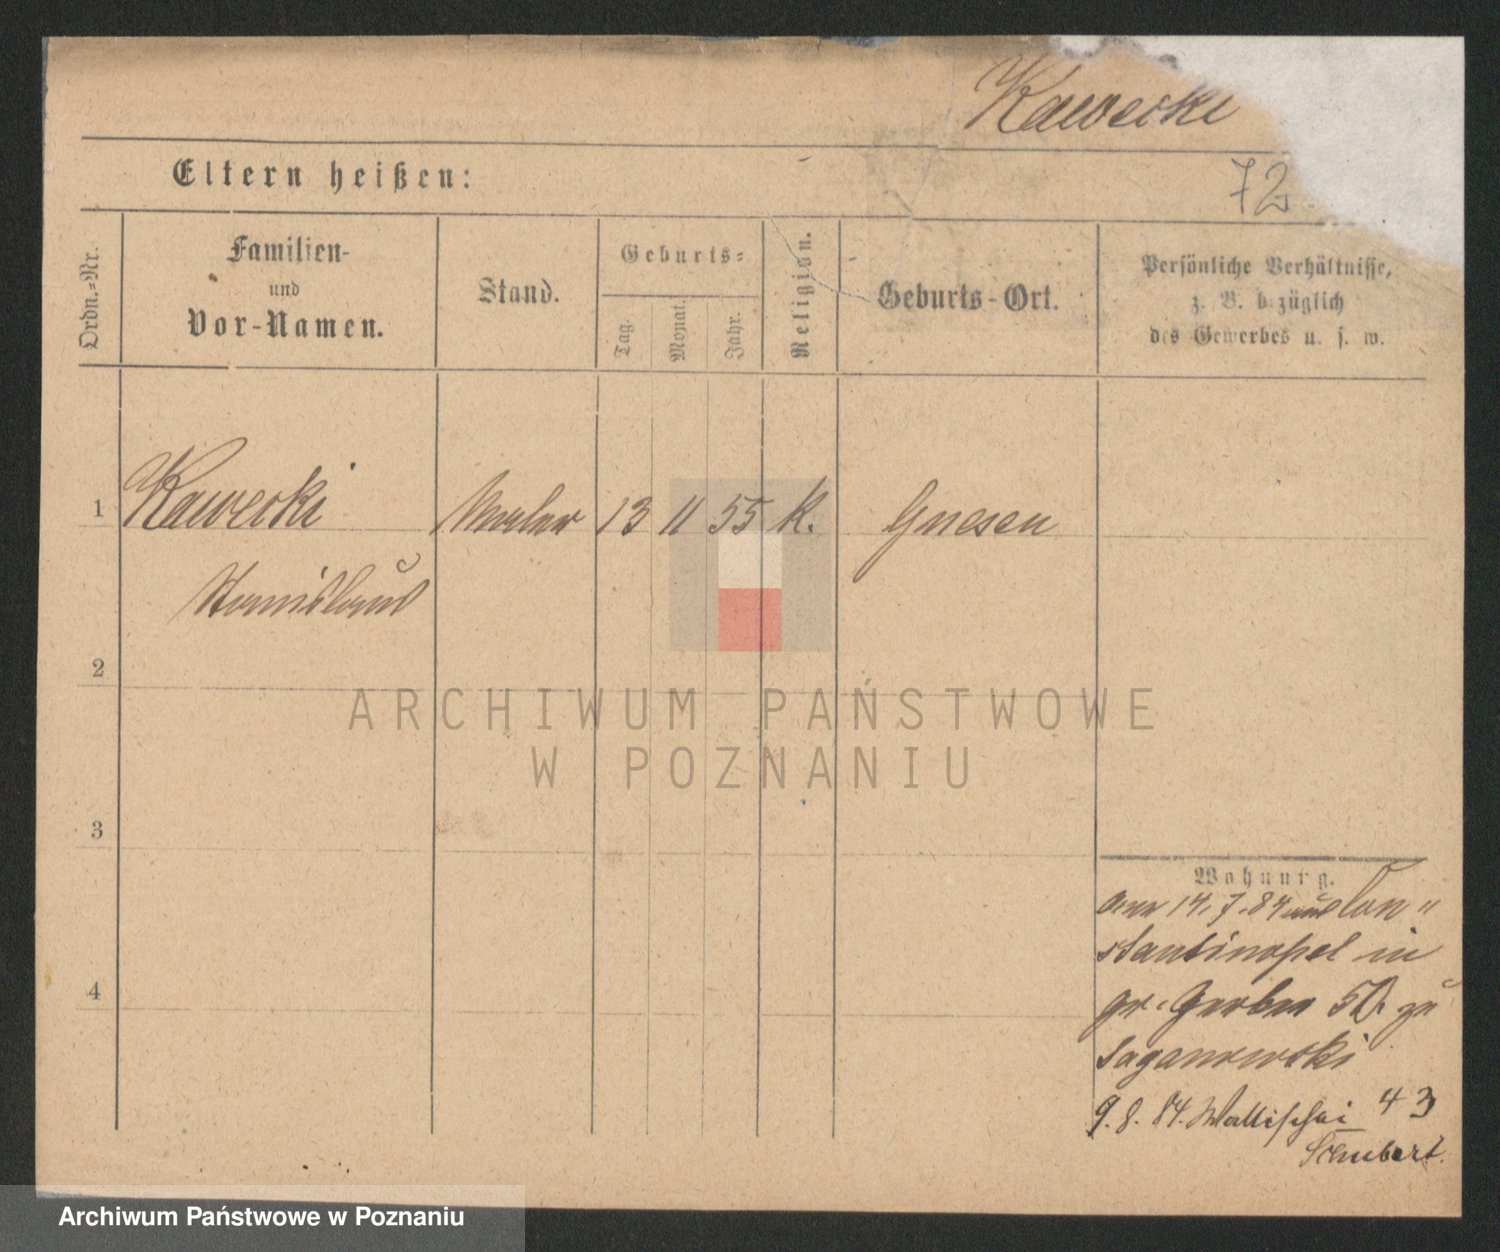 Kawecki
Eltern heißen:
72
Ordn.-Nr.
Familien-
und
Vor-Namen.
Stand.
Geburts-
Tag.
Monat.
Jahr.
Religion.
Geburts-Ort.
Persönliche Verhältnisse,
z. B. bezüglich
des Gewerbes u. s. w.
1 Kawecki Maler 13 11 55 K. Gnesen
Stanislaus
2
3
4
Wohnung.
14. 7. 84 aus Con"
stantinopel in
gr. Gerber 50 zu
Saganowski
9. 8. 84. Wallischei 43
Schubert.
ARCHIWUM PAŃSTWOWE
W POZNANIU
Archiwum Państwowe w Poznaniu